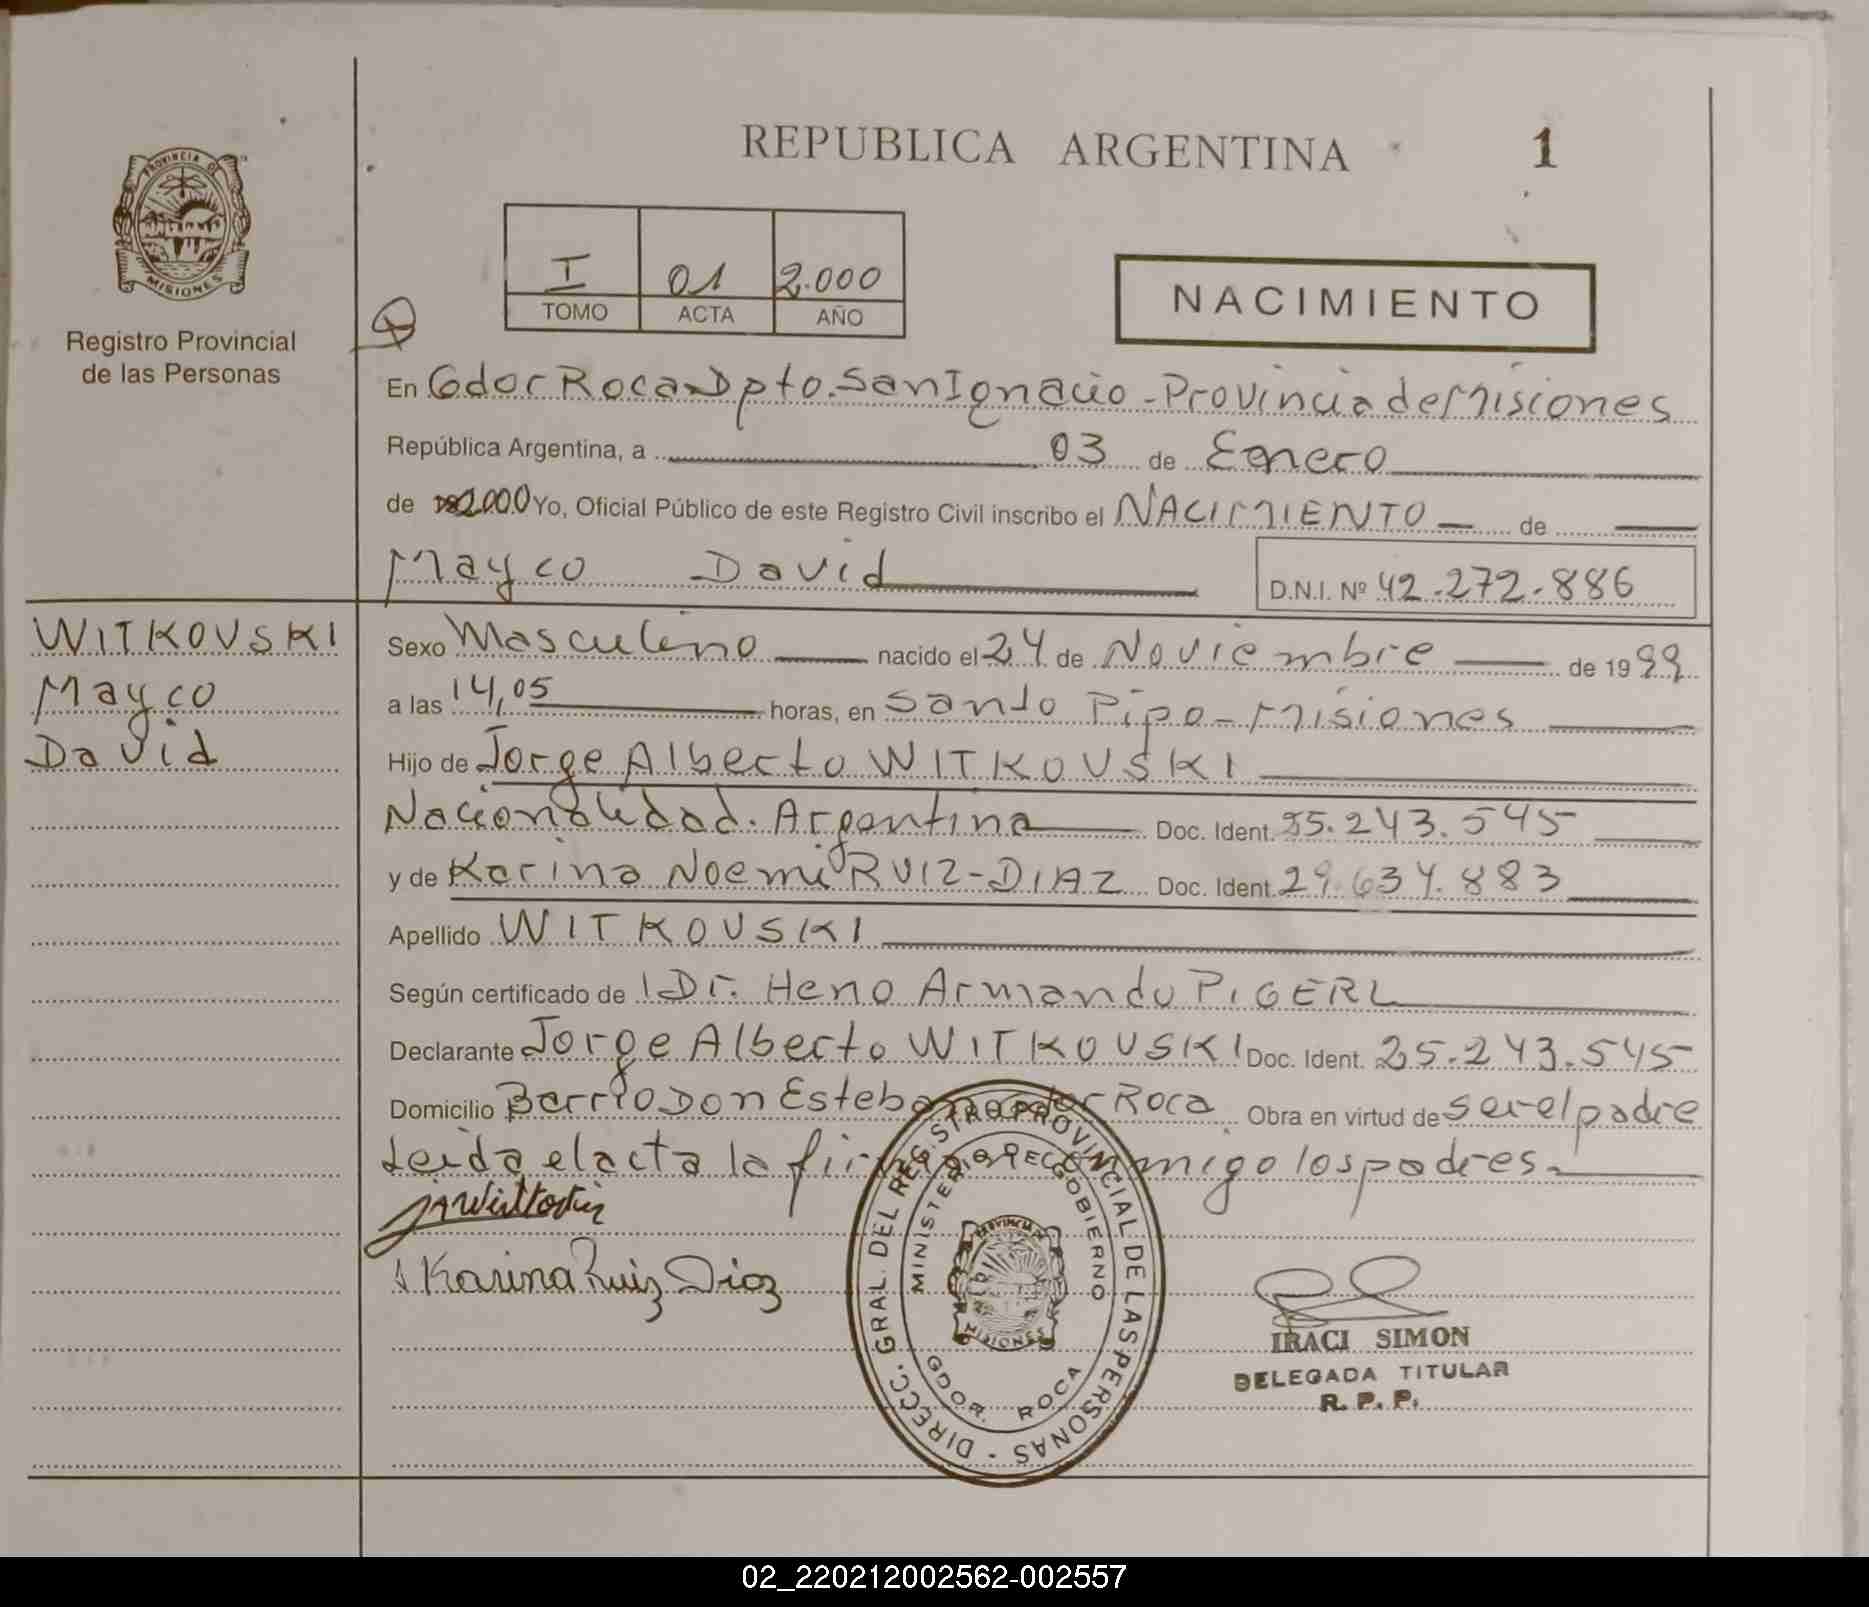 REPUBLICA ARGENTINA
1
PROVINCIA DE
MISIONES
Registro Provincial
de las Personas
I 01 2.000
TOMO ACTA AÑO
NACIMIENTO
En Gdor Roca Dpto. San Ignacio - Provincia de Misiones
República Argentina, a 03 de Enero
de 2000 Yo, Oficial Público de este Registro Civil inscribo el NACIMIENTO de
Mayco David D.N.I. Nº 42.272.886
WITKOVSKI
Mayco
David
Sexo Masculino nacido el 24 de Noviembre de 1999
a las 14,05 horas, en Santo Pipo - Misiones
Hijo de Jorge Alberto WITKOVSKI
Nacionalidad. Argentina Doc. Ident. 25.243.545
y de Karina Noemi RUIZ-DIAZ Doc. Ident. 29.634.883
Apellido WITKOVSKI
Según certificado de Dr. Heno Armando PIGERL
Declarante Jorge Alberto WITKOVSKI Doc. Ident. 25.243.545
Domicilio Barrio Don Esteban Gdor Roca Obra en virtud de ser el padre
Leida el acta la firman conmigo los padres.
Karina Ruiz Diaz
DIRECC. GRAL. DEL REGISTRO PROVINCIAL DE LAS PERSONAS
MINISTERIO DE GOBIERNO
PROVINCIA DE
MISIONES
GDOR. ROCA
IRACI SIMON
DELEGADA TITULAR
R. P. P.
02_220212002562-002557